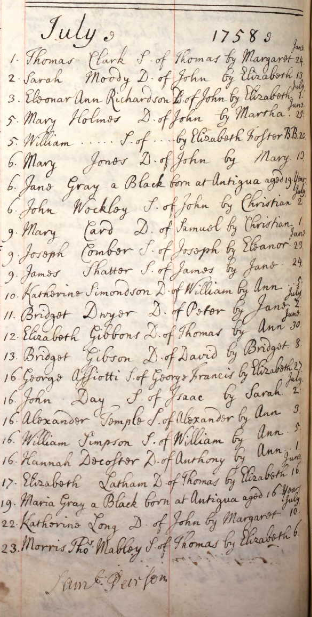 July 1758
June
1. Thomas Clark S. of Thomas by Margaret 24
2 Sarah Moody D. of John by Elizabeth 13
July
3. Eleonar Ann Richardson D of John by Elizabeth 1
June
5. Mary Holmes D. of John by Martha. 25
5. William ..... S. of ... by Elizabeth Foster BB. 22
6. Mary Jones D. of John by Mary 13
6. Jane Gray a Black born at Antigua aged 19 Year
July
6. John Weckley S. of John by Christian 2
9. Mary Card D. of Samuel by Christian 1
June
9. Joseph Comber S. of Joseph by Eleanor 23
9. James Shatter S. of James by Jane 24
10. Katherine Simondson D. of William by Ann
July
11. Bridget Dwyer D. of Peter by Jane 2
June
12. Elizabeth Gibbons D. of Thomas by Ann 30
13. Bridget Gibson D. of David by Bridget 8
16 George Assiotti S. of George Francis by Elizabeth 27
July
16 John Day S. of Isaac by Sarah 2
16. Alexander Temple S. of Alexander by Ann 3
16. William Simpson S. of William by Ann 5
16. Hannah Decoster D. of Anthony by Ann 1
June
17. Elizabeth Latham D of Thomas by Elizabeth 16
19. Maria Gray a Black born at Antigua aged 16 Year
July
22 Katherine Long D of John by Margaret 10
23. Morris Thos. Mabley S. of Thomas by Elizabeth 6.
Saml. Parson